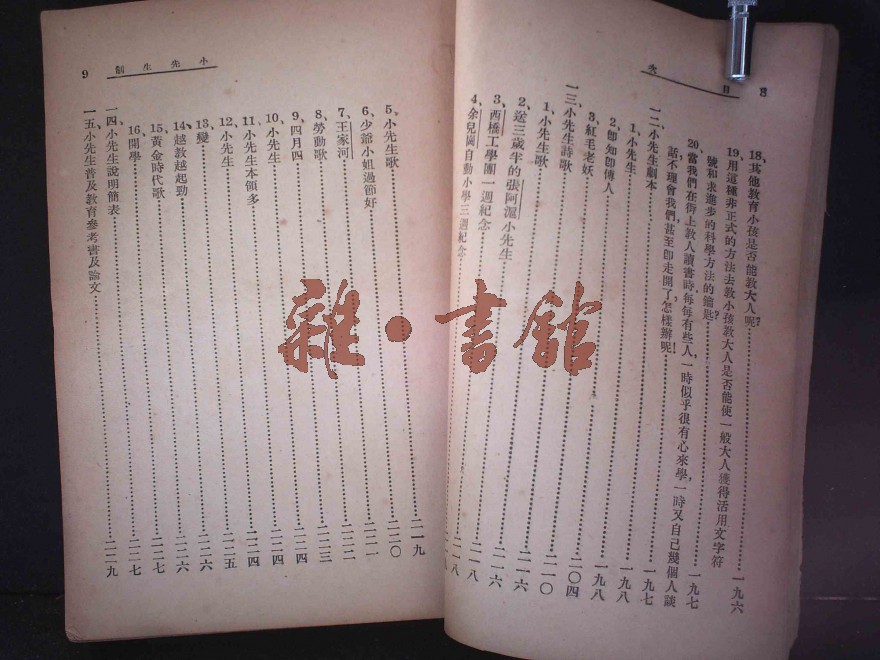 8 目次
18、其他教育小孩是否能教大人呢？……一九六
19、用這種非正式的方法去教小孩教大人是否能使一般大人獲得活用文字符
號和求進步的科學方法的鑰匙？……一九七
20、當我們在街上教人讀書時，每每有些人，一時似乎很有心來學，一時又自己幾個人談
話不理會我們，甚至卽走開了，怎樣辦呢！
一二、小先生劇本……一九七
1、小先生……一九八
2、卽知卽傳人……一九八
3、紅毛老妖……二〇四
一三、小先生詩歌……二一〇
1、小先生歌……二一六
2、送三歲半的張阿滬小先生……二一六
3、西橋工學團一週紀念……二一八
4、余兒岡自動小學三週紀念……二一八
小先生制 9
5、小先生歌……二一九
6、少爺小姐過節好……二二〇
7、王家河……二二一
8、勞動歌……二二二
9、四月四……二二三
10、小先生……二二四
11、小先生本領多……二二四
12、小先生……二二四
13、變……二二五
14、越教越起勁……二二六
15、黃金時代歌……二二六
16、開學……二二七
一四、小先生說明簡表……二二七
一五、小先生普及教育參考書及論文……二二九
雜·書館